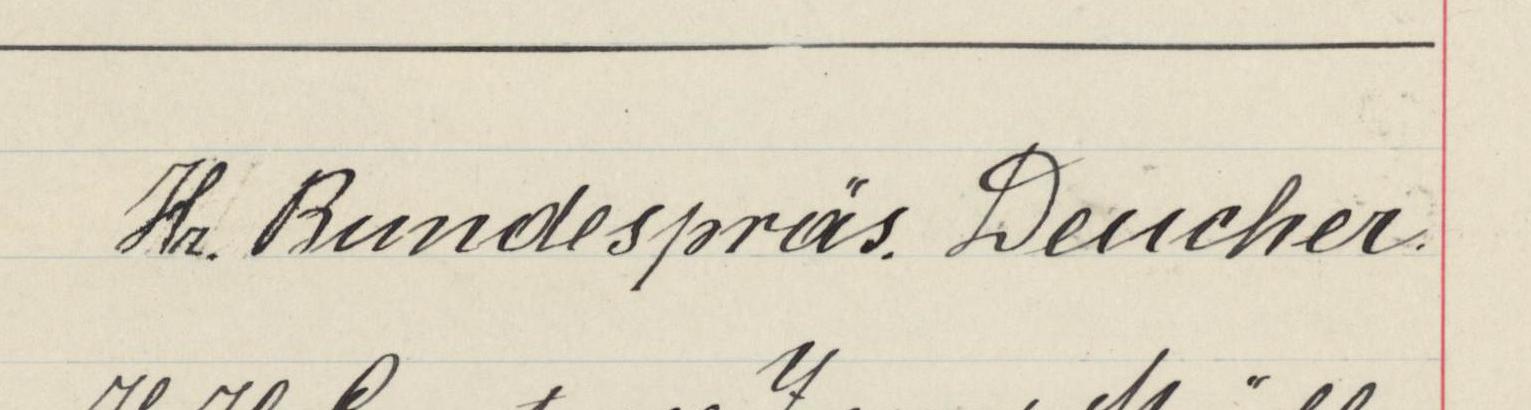 Hr. Bundespräs. Deucher.